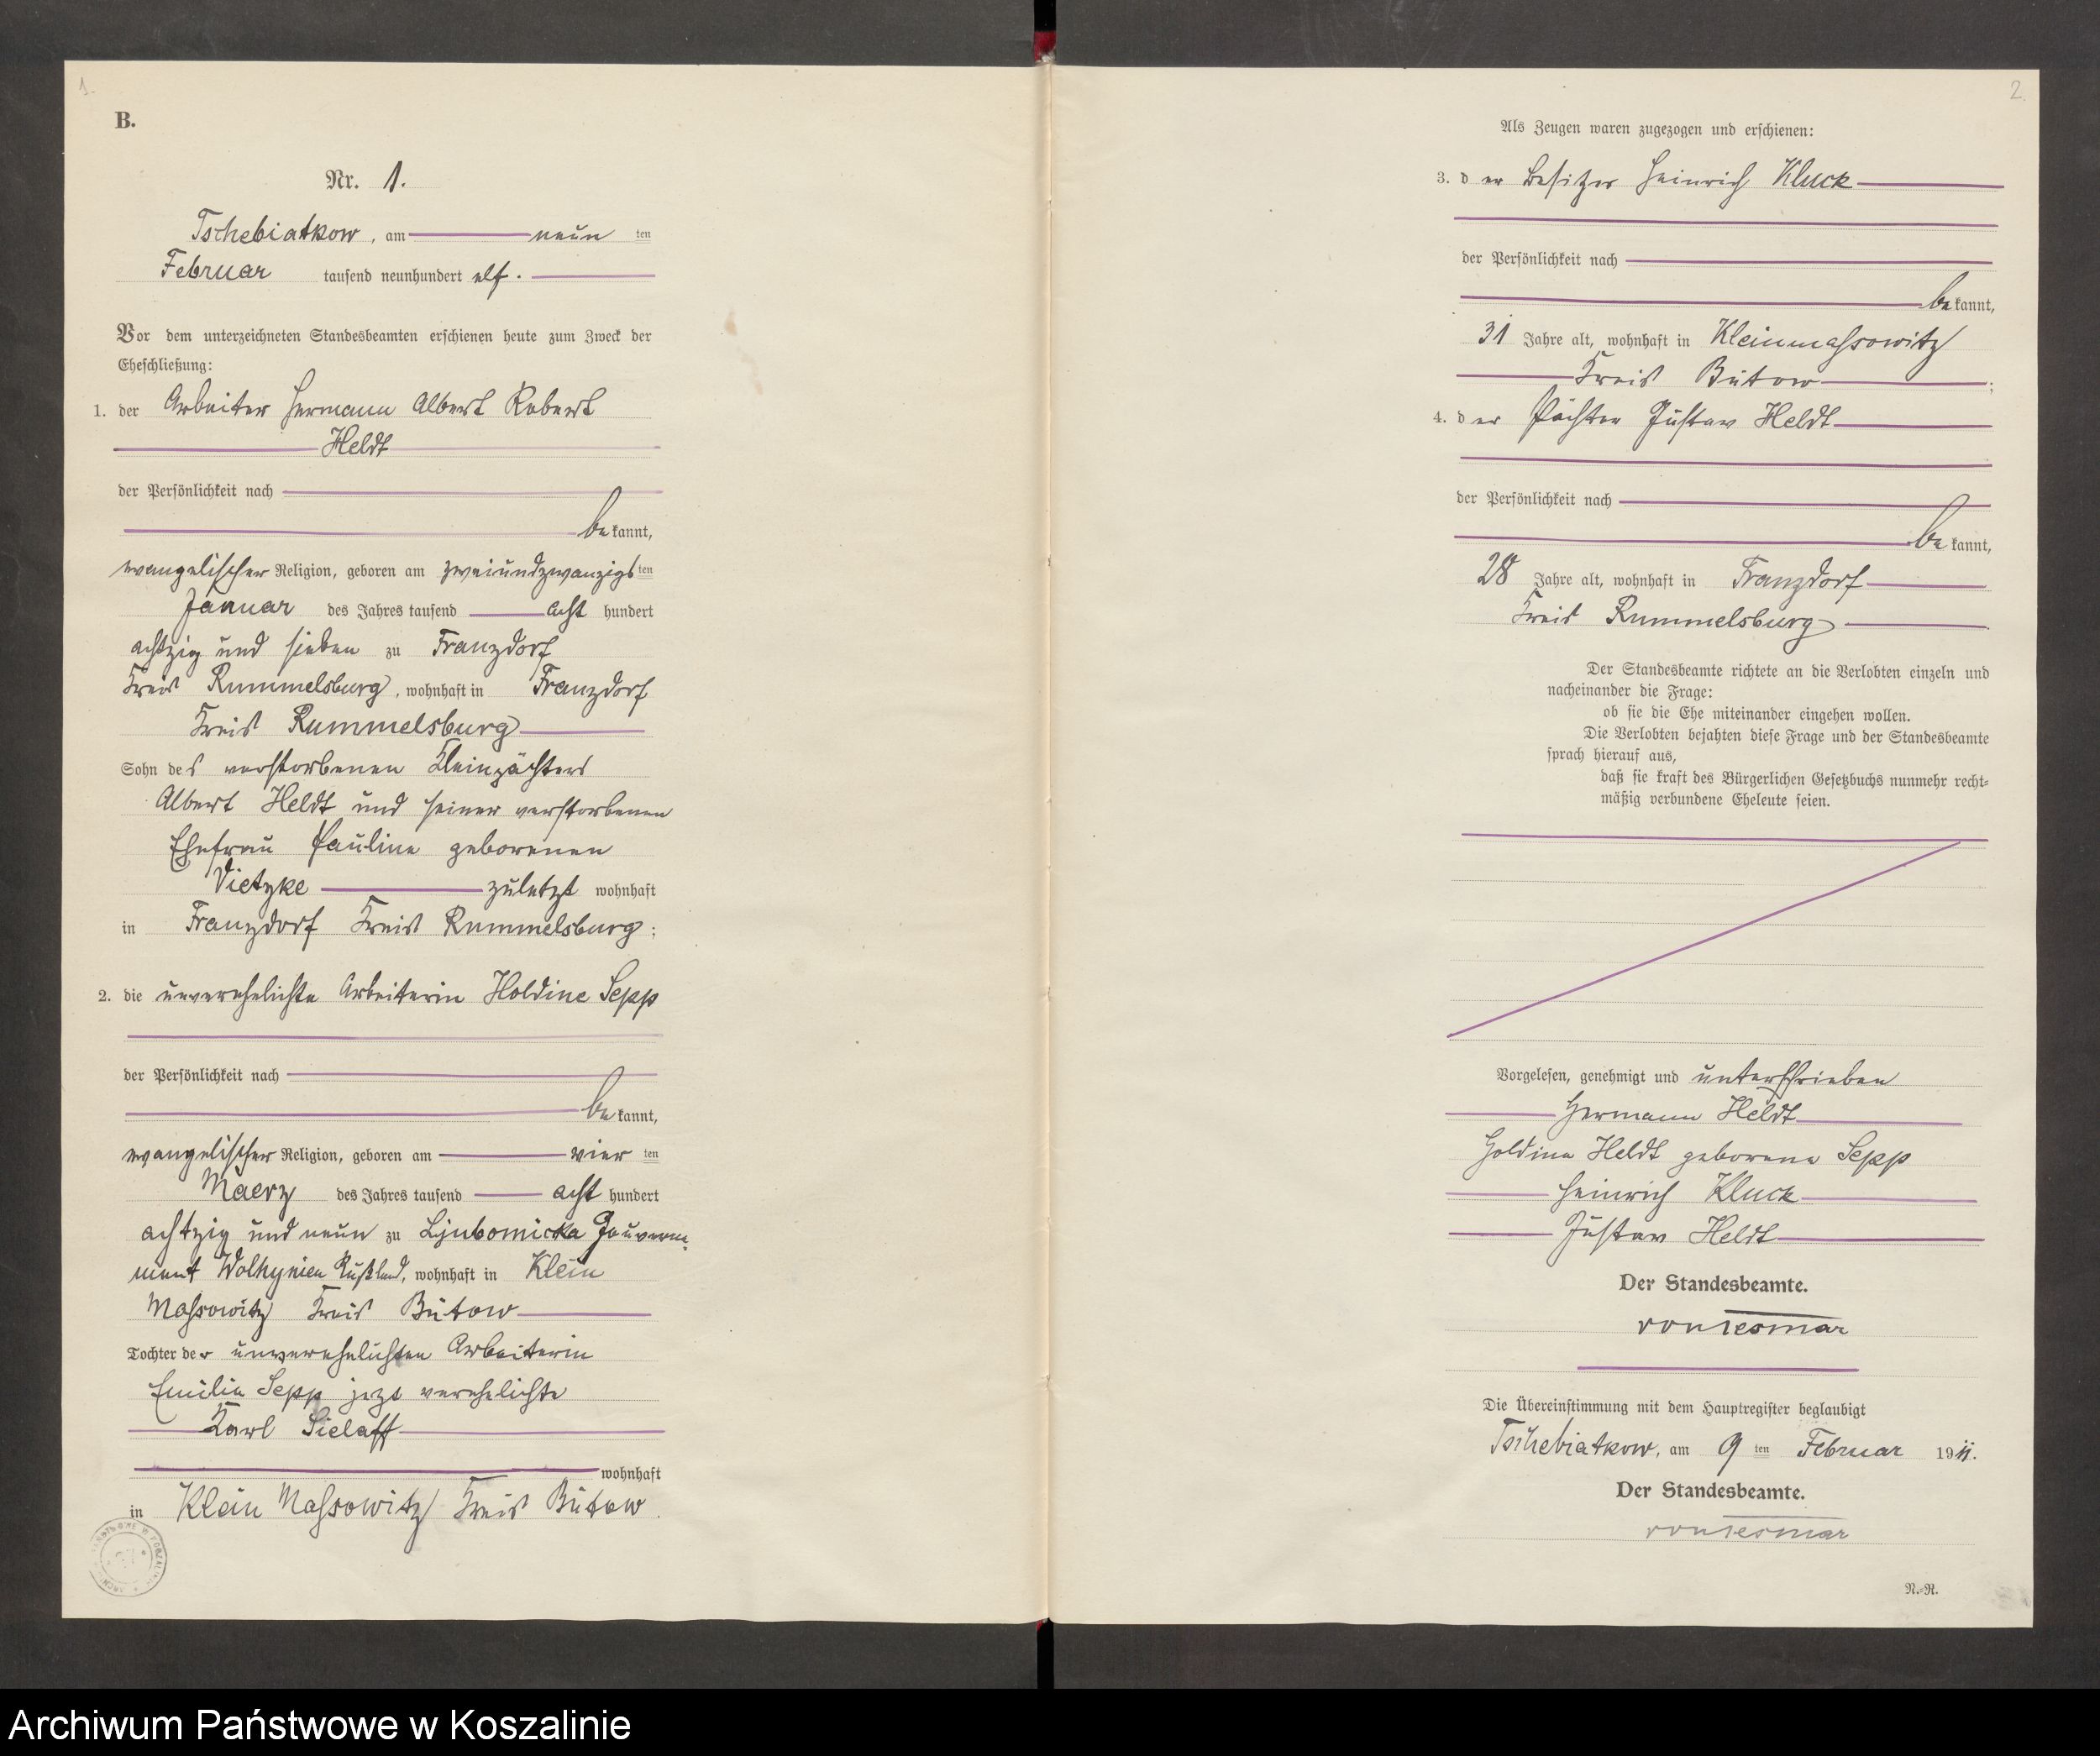 1.
B.
Nr. 1.
Tschebiatkow, am neun ten
Februar tausend neunhundert elf.
Vor dem unterzeichneten Standesbeamten erschienen heute zum Zweck der
Eheschließung:
1. der Arbeiter Hermann Albert Robert
Heldt
der Persönlichkeit nach
be kannt,
evangelischer Religion, geboren am zweiundzwanzigsten
Januar des Jahres tausend acht hundert
achtzig und sieben zu Franzdorf
Kreis Rummelsburg, wohnhaft in Franzdorf
Kreis Rummelsburg
Sohn des verstorbenen Kleinpächters
Albert Heldt und seiner verstorbenen
Ehefrau Pauline geborenen
Vietzke zuletzt wohnhaft
in Franzdorf Kreis Rummelsburg;
2. die unverehelichte Arbeiterin Holdine Sepp
der Persönlichkeit nach
be kannt,
evangelischer Religion, geboren am vier ten
Maerz des Jahres tausend acht hundert
achtzig und neun zu Ljubomicka Gouverne-
ment Wolhynien Rußland, wohnhaft in Klein
Massowitz Kreis Bütow
Tochter der unverehelichten Arbeiterin
Emilie Sepp jetzt verehelichte
Karl Sielaff
wohnhaft
in Klein Massowitz Kreis Bütow.
2.
Als Zeugen waren zugezogen und erschienen:
3. der Besitzer Heinrich Kluck
der Persönlichkeit nach
be kannt,
31 Jahre alt, wohnhaft in Kleinmassowitz
Kreis Bütow;
4. der Pächter Gustav Heldt
der Persönlichkeit nach
be kannt,
28 Jahre alt, wohnhaft in Franzdorf
Kreis Rummelsburg
Der Standesbeamte richtete an die Verlobten einzeln und
nacheinander die Frage:
ob sie die Ehe miteinander eingehen wollen.
Die Verlobten bejahten diese Frage und der Standesbeamte
sprach hierauf aus,
daß sie kraft des Bürgerlichen Gesetzbuchs nunmehr recht-
mäßig verbundene Eheleute seien.
Vorgelesen, genehmigt und unterschrieben
Hermann Heldt
Holdine Heldt geborene Sepp
Heinrich Kluck
Gustav Heldt
Der Standesbeamte.
Die Übereinstimmung mit dem Hauptregister beglaubigt
Tschebiatkow, am 9 ten Februar 1911.
Der Standesbeamte.
N.-R.
Archiwum Państwowe w Koszalinie